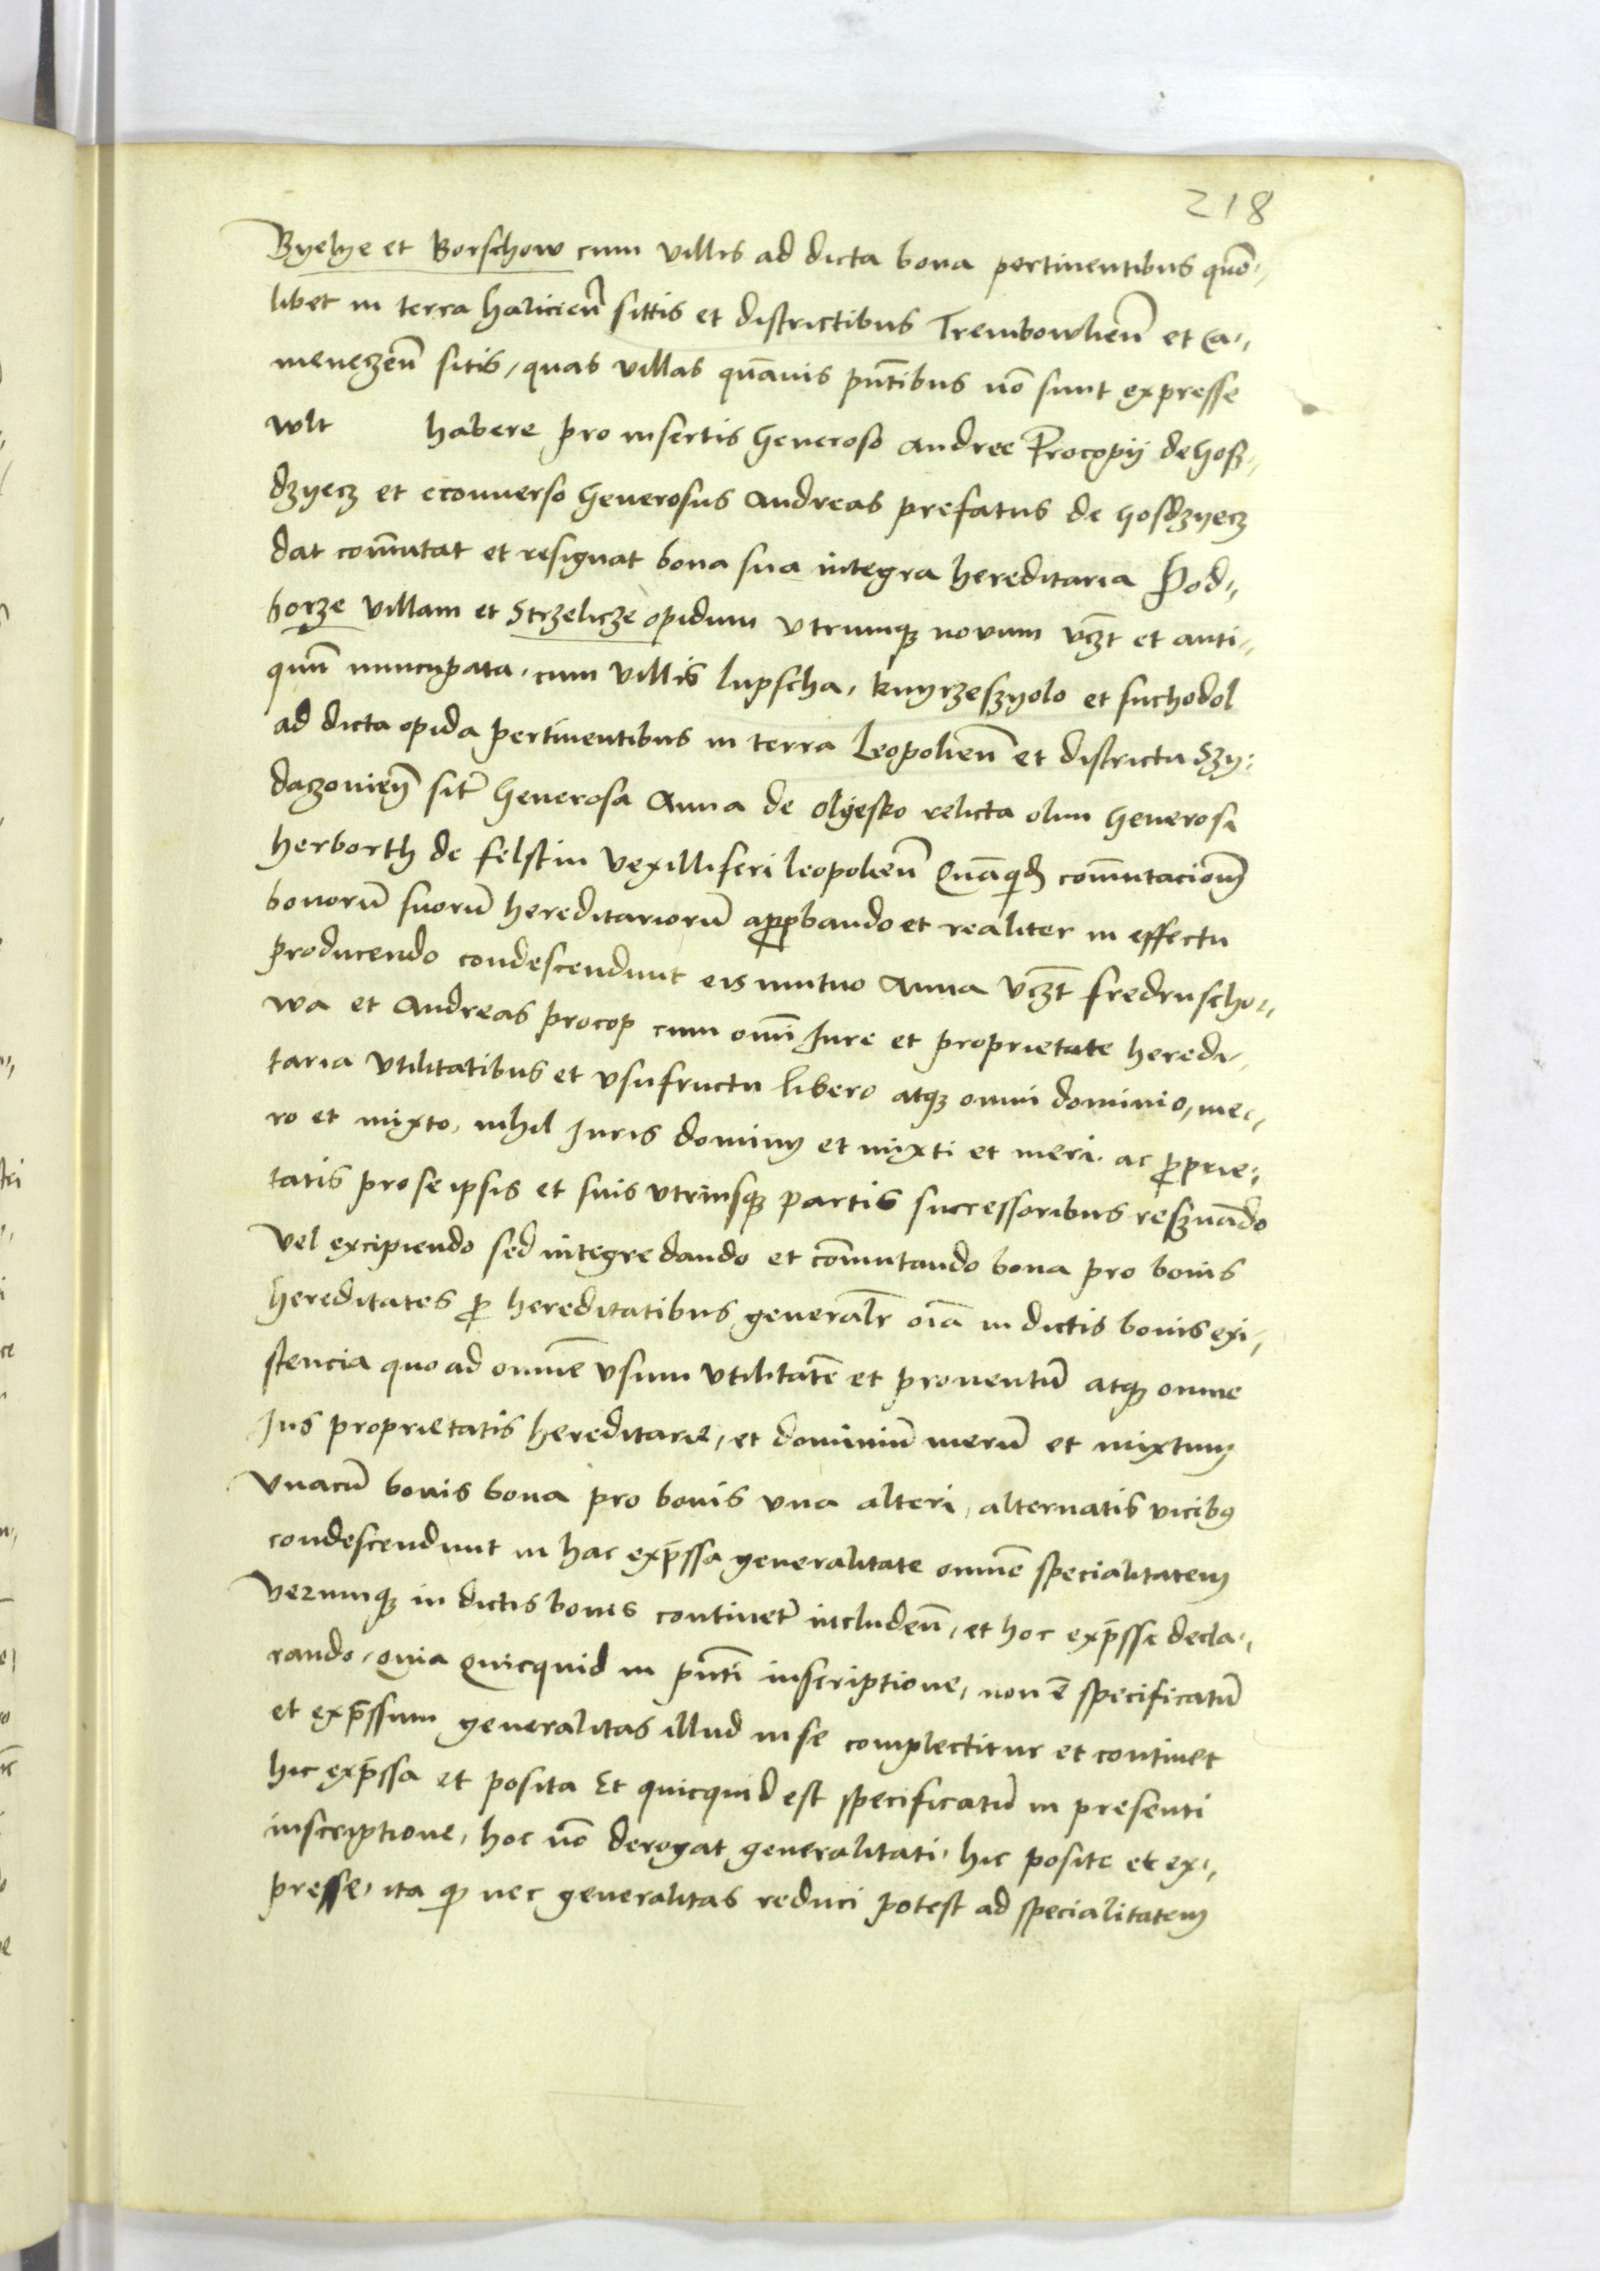 218
Byelye et Borschow cum villis ad dicta bona pertinentibus quo-
libet in terra halicień sittis et districtibus Trembowlień et Ca-
menezeń sitis, quas villas quāuis pn̄tibus nō sunt expresse
wlt habere pro insertis Generoso Andree Procopij de hosz-
dzyecz et econuerso Generosus Andreas prefatus de Gosdzyecz
dat com̄utat et resignat bona sua integra hereditaria Pod-
horze villam et Strzelicze opidum vtrumqȝ novum vcȝt et anti-
quū nuncupata, cum villis lupscha, knyrzeszyolo et suchodol
ad dicta opida pertinentibus in terra Leopolień et districtu Szy-
daczouień sit̄ Generosa Anna de Olyesko relicta olim Generosi
herborth de felstin vexilliferi leopolień Quāquid com̄utacionē
bonorū suorū hereditariorū approbando et realiter in effectu
producendo condescendunt eis mutuo Anna vcȝt fredruscho-
wa et Andreas procop cum om̄i Iure et proprietate heredi-
taria vtilitatibus et vsufructu libero atqȝ omni dominio, me-
ro et mixto, nihil Iuris dominij et mixti et meri, ac proprie-
tatis pro se ipsis et suis vtriusqȝ partis successoribus reseruādo
vel excipiendo sed integre dando et com̄utando bona pro bonis
hereditates ꝓ hereditatibus generalr̄ oīa in dictis bonis exi-
stencia quo ad omnē vsum vtilitatē et prouentū atqȝ omne
Ius proprietatis hereditarie, et dominiū merū et mixtum
vnacū bonis bona pro bonis vna alteri, alternatis vicibꝰ
condescendunt in hac exp̄ssa generalitate omnē specialitatem
vt̄rumqȝ in dictis bonis continet̄ includeń, et hoc exp̄sse decla-
rando, quia quicquid in pn̄ti inscriptione, non ē specificatū
et exp̄ssum generalitas illud in se complectitur et continet
hic exp̄ssa et posita Et quicquid est specificatū in presenti
inscriptione, hoc nō derogat generalitati, hic posite et ex-
presse, ita qȝ nec generalitas reduci potest ad specialitatem